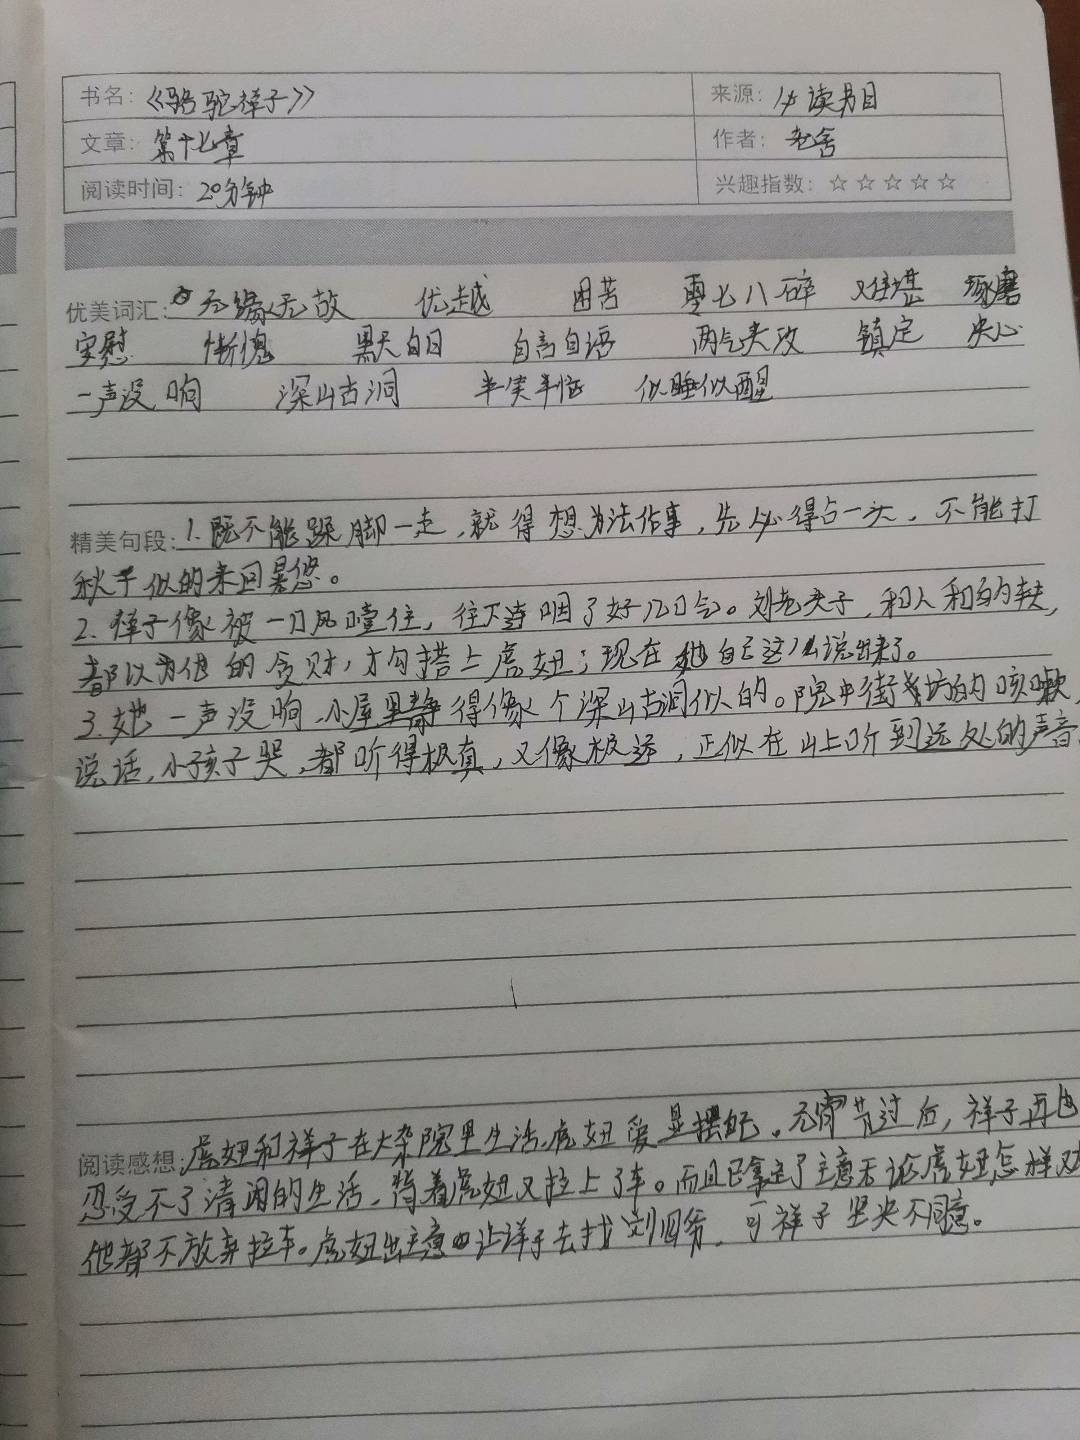 书名：《骆驼祥子》 来源：必读书目
文章：第十七章 作者：老舍
阅读时间：20分钟 兴趣指数：☆☆☆☆☆
优美词汇：无缘无故 优越 困苦 零七八碎 难堪 琢磨
安慰 惭愧 黑天白日 自言自语 两气夹攻 镇定 决心
一声没响 深山古洞 半笑半恼 似睡似醒
精美句段：1.既不能跺脚一走，就得想办法作事，先必得占一头，不能打
秋千似的来回晃悠。
2.祥子像被一口风噎住，往下连咽了好几口气。刘老头子，和人和的车夫，
都以为他的贪财，才勾搭上虎妞；现在她自己这么说出来了。
3.她一声没响，小屋里静得像个深山古洞似的。院中街坊的咳嗽，
说话，小孩子哭，都听得极真，又像极远，正似在山上听到远处的声音。
阅读感想：虎妞和祥子在大杂院里生活，虎妞爱显摆吃。元宵节过后，祥子再也
忍受不了清闲的生活，背着虎妞又拉上了车。而且已拿定了主意无论虎妞怎样对
他都不放弃拉车。虎妞出主意让祥子去找刘四爷，可祥子坚决不同意。